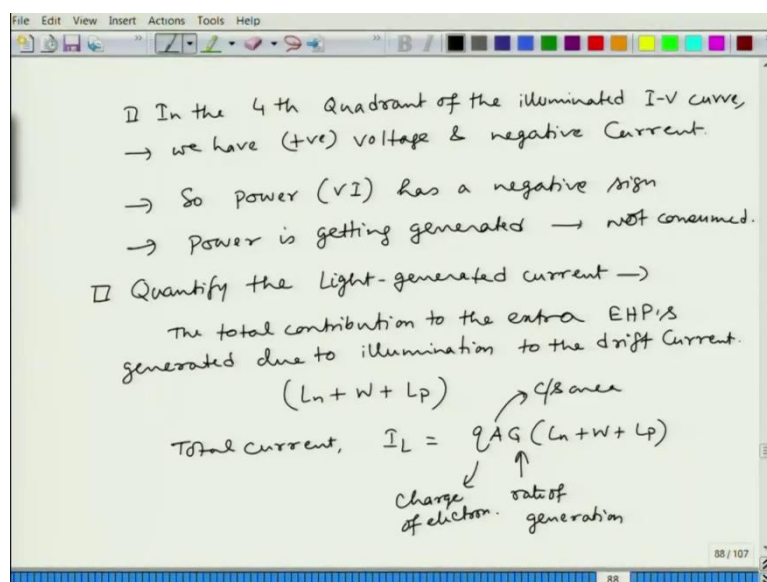 File Edit View Insert Actions Tools Help
B I
□ In the 4th Quadrant of the illuminated I-V curve,
→ we have (+ve) voltage & negative Current.
→ So power (VI) has a negative sign
→ Power is getting generated → not consumed.
□ Quantify the Light-generated current →
The total contribution to the extra EHP's
generated due to illumination to the drift Current.
(Ln + W + Lp)
c/s area
Total current, IL = qAG (Ln + W + Lp)
Charge of electron.
rate of generation
88 / 107
88